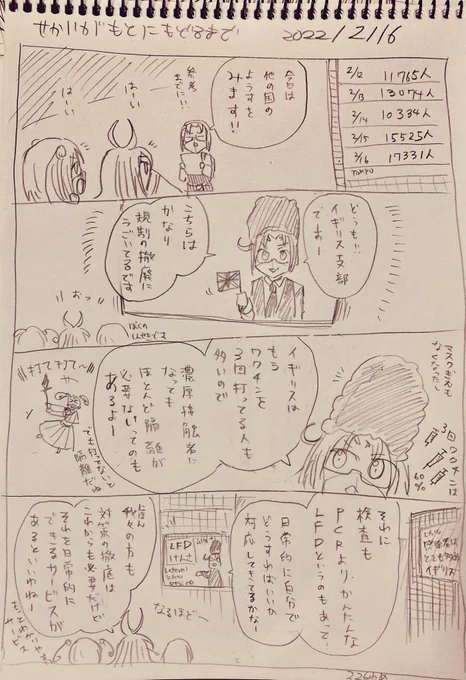 せかいがもとにもどるまで
2022/2/16
2/12 11765人
2/13 13074人
2/14 10334人
2/15 15525人
2/16 17331人
TOKYO
今日は
他の国の
ようすを
みます!!
参考
までに!!
はーい
はーい
どうも!!
イギリス支部
ですー
こちらは
かなり
規制の撤廃に
うごいてるです
おっ
マスクのぎむも
なくなったし
3回ワクチンは
60%
イギリスは
もう
ワクチンを
3回打ってる人も
多いので
濃厚接触者に
なっても
ほとんど隔離が
必要ないってのも
あるよ
打て打て〜
でも打ってないと
隔離だね
それに
検査も
PCRよりかんたんな
LFDというのもあって
日常的に自分で
どうすればいいか
対応してきてるかなー
LFD
けんさ
なるほど〜
我々の方も
対策の撤底は
これからも必要だけど
それを日常的に
できるサービスが
あるといいわねー
もっとわかりやすい
サービス